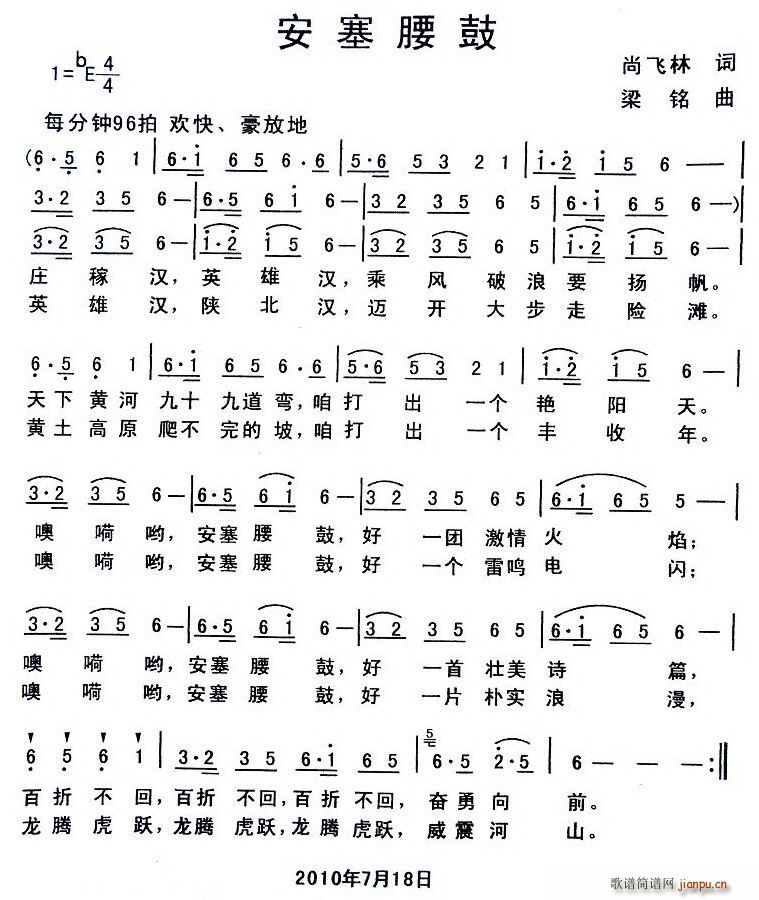 安塞腰鼓
1=ᵇE 4/4
尚飞林 词
梁铭 曲
每分钟96拍 欢快、豪放地
(6·5 6 1 | 6·i 65 6·6 | 5·6 53 21 | i·2 i5 6— |
3·2 35 6— | 6·5 6i 6— | 32 35 65 | 6·i 65 6—)
3·2 35 6— | i·2 i5 6— | 32 35 65 | 6·i 65 6— |
庄稼汉，英雄汉，乘风破浪要扬帆。
英雄汉，陕北汉，迈开大步走险滩。
6·5 6 1 | 6·i 65 6·6 | 5·6 53 21 | i·2 i5 6— |
天下黄河九十九道弯，咱打出一个艳阳天。
黄土高原爬不完的坡，咱打出一个丰收年。
3·2 35 6— | 6·5 6i 6— | 32 35 65 | 6·i 65 5— |
噢嗬哟，安塞腰鼓，好一团激情火焰；
噢嗬哟，安塞腰鼓，好一个雷鸣电闪；
3·2 35 6— | 6·5 6i 6— | 32 35 65 | 6·i 65 6— |
噢嗬哟，安塞腰鼓，好一首壮美诗篇，
噢嗬哟，安塞腰鼓，好一片朴实浪漫，
6 5 6 1 | 3·2 35 6·i 65 | 5 6·5 2·5 | 6— — :‖
百折不回，百折不回，百折不回，奋勇向前。
龙腾虎跃，龙腾虎跃，龙腾虎跃，威震河山。
2010年7月18日
歌谱简谱网
jianpu.cn